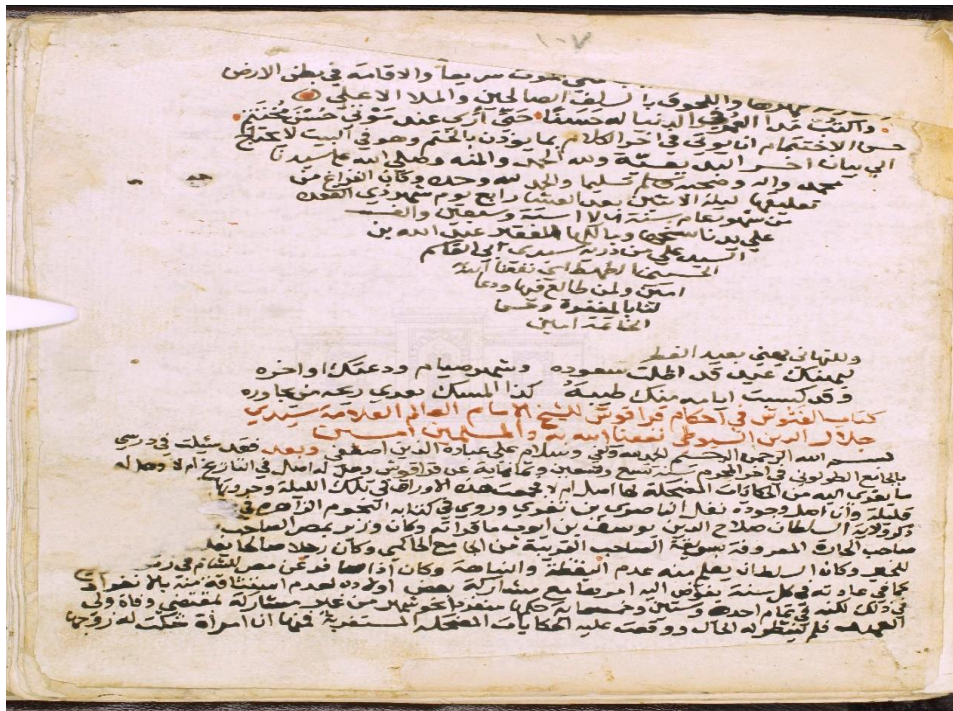 ١٠٧
سريعا والاقامة في بطن الارض
واللحوق بالسلف الصالحين والملا الاعلى
العمر في الدنيا له حسنا حتى أرى عند موتي حسن مختتم
حسن الاختتام ان يوتى في اخر الكلام بما يوذن بالختم وهو في البيت لا يحتاج
الى بيان اخر البديعية ولله الحمد والمنه وصلى الله على سيدنا
محمد واله وصحبه وسلم تسليما والحمد لله وحده وكان الفراغ من
تعليقها ليلة الاثنين بعد العشا رابع يوم شهر ذي القعده
من شهور عام سنة وسبعين والف
على يد ناسخها ومالكها الفقير عبد الله بن
السيد علي من ذرية سيدي ابي القاسم
الحسيني الطهطاي نفعنا الله
امين ولمن طالع فيها ودعا
لنا بالمغفرة وحسن
الخاتمة امين
وللتهاني يعني بعيد الفطر
ليهنك عيد قد اهلت سعوده وشهر صيام ودعتك اواخره
وقد كسبت ايامه منك طيبة كذا المسك يعدي ريحه من يجاوره
كتاب الفاشوش في احكام قراقوش للشيخ الامام العالم العلامة سيدي
جلال الدين السيوطي نفعنا الله به والمسلمين امين
بسم الله الرحمن الرحيم الحمد لله وكفى وسلام على عباده الذين اصطفى وبعد فقد سئلت في درسي
بالجامع الطولوني في اخر المحرم سنة تسع وتسعين وثمانماية عن قراقوش وهل له اصل في التاريخ ام لا وهل له
ما يعزى اليه من الحكايات المضحكة لها اصل ام لا فجمعت هذه الاوراق في تلك الليلة وحررتها
قليلة وان اصل وجوده نقل الناصري بن تغري وروى في كتابه النجوم الزاهره في
ذكر ولاية السلطان صلاح الدين يوسف بن ايوب ما قراته وكان وزير بمصر الصاحب
صاحب الحارة المعروفة بسويقة الصاحب القريبة من الجامع الحاكمي وكان رجلا صالحا
وكان السلطان يعلم منه عدم اليقظة والنباهة وكان اذا سافر من مصر للشام في
كما في عادته في كل سنة يفوض اليه امورها مع مشاركة بعض اولاده لعدم استنثاقة منه بالانفراد
في ذلك لكنه في عام احد وستين وخمسماية منفردا من غير مشاركة لمقتضى وفاة ولي
العهد فلم الحال ووقعت عليه الحكايات المضحكة المستغربة فمنها ان امرأة شكت له زوجها